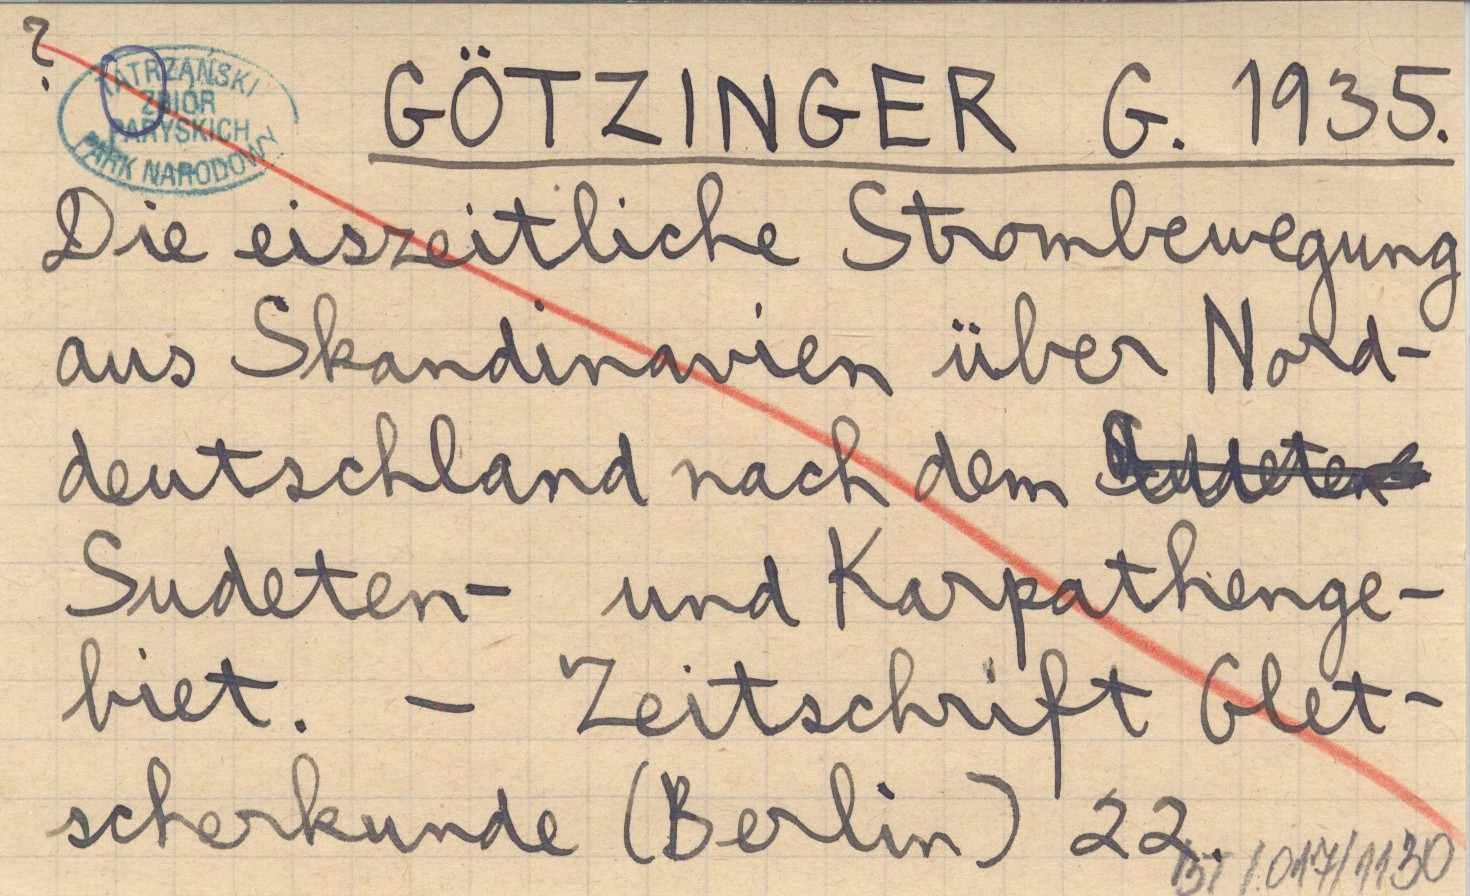 ?
TATRZAŃSKI
ZBIÓR
PARYSKICH
PARK NARODOWY
GÖTZINGER G. 1935.
Die eiszeitliche Strombewegung
aus Skandinavien über Nord-
deutschland nach dem Sudeten
Sudeten- und Karpathenge-
biet. - Zeitschrift Glet-
scherkunde (Berlin) 22.
/017/1130